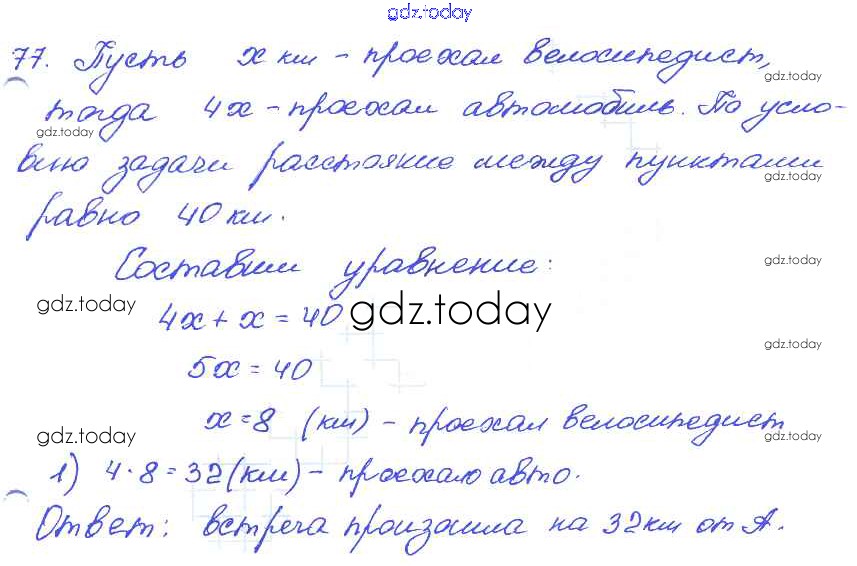 gdz.today
77. Пусть x км - проехал велосипедист,
gdz.today
тогда 4x - проехал автомобиль. По усло-
gdz.today
вию задачи расстояние между пунктами
gdz.today
равно 40 км.
Составим уравнение:
gdz.today
gdz.today
4x + x = 40
gdz.today
gdz.today
5x = 40
x = 8 (км) - проехал велосипедист
gdz.today
gdz.today
1) 4 · 8 = 32 (км) - проехало авто.
Ответ: встреча произошла на 32 км от А.